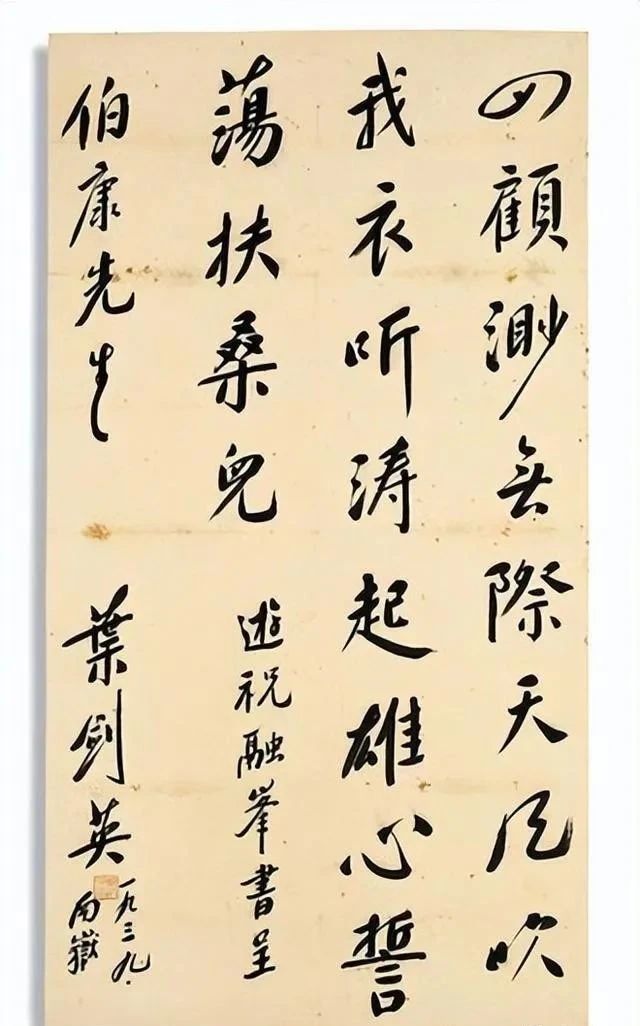 四顧渺無際天风吹
我衣听涛起雄心誓
蕩扶桑兒
遊祝融峯書呈
伯康先生
葉劍英
一九三九.
南嶽